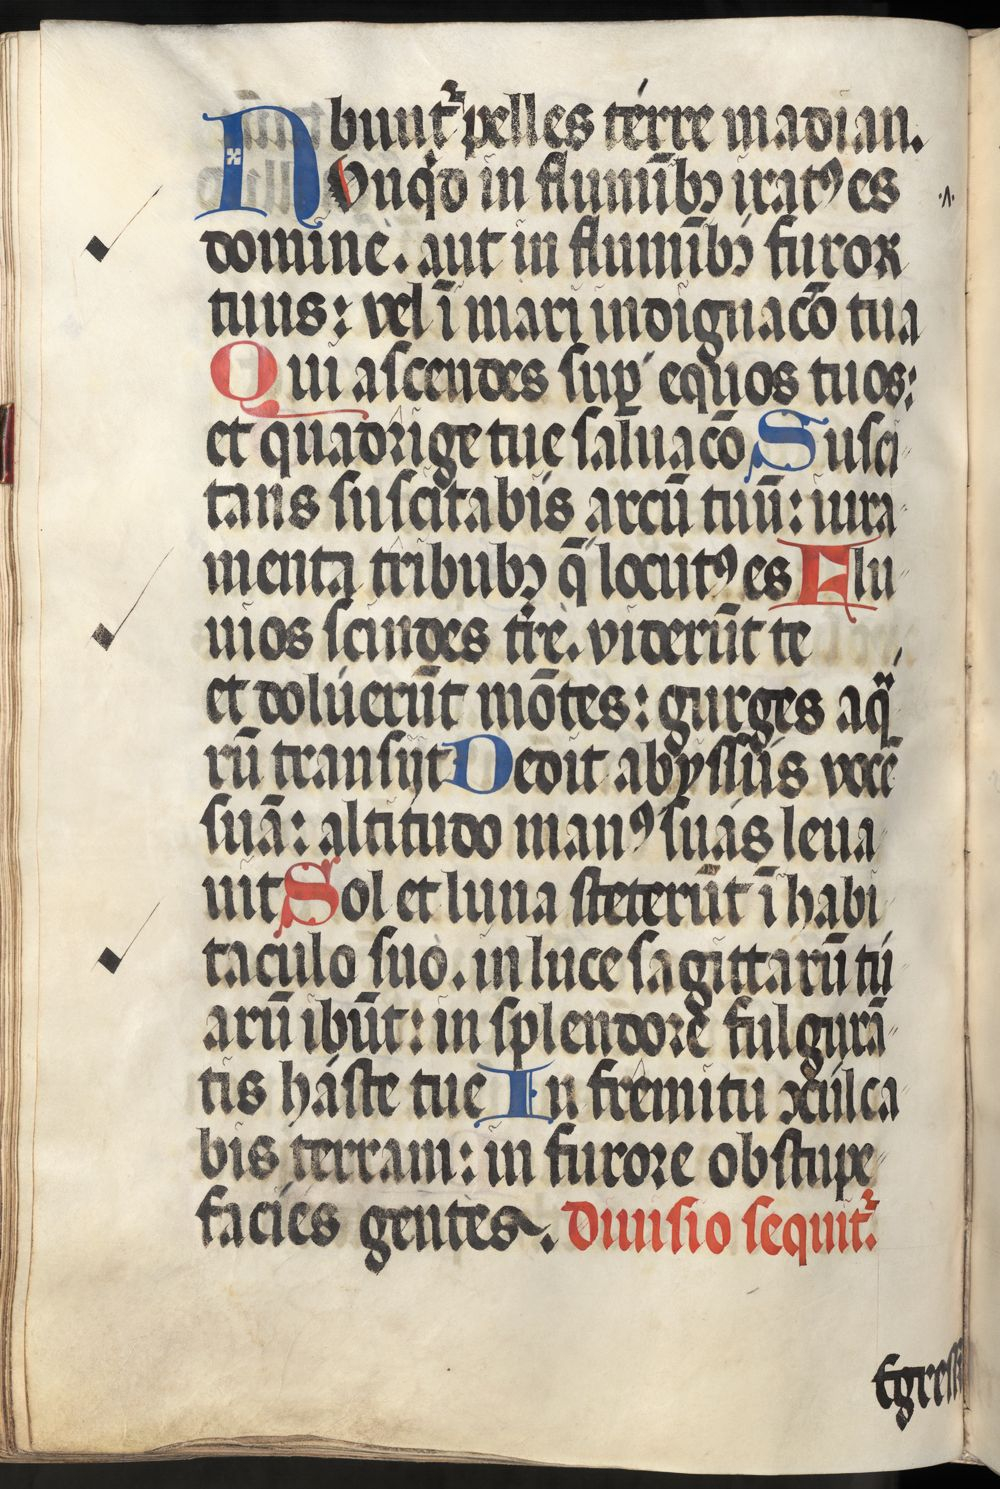 bunt᷑ pelles terre madian.
Nvnq̇d in flumībꝫ irat⁹ es ·ʌ·
domine. aut in flumībꝫ furor
tuus: vel ī mari indignacō tua
Qui ascendes suꝑ equos tuos:
et quadrige tue saluacō Susci
tans suscitabis arcū tuū: iura
menta tribubꝫ q̄ locut⁹ es Flu
uios scindes tr̄e. viderūt te
et doluerūt mōtes: gurges aq̈
rū transijt Dedit abyssus vocē
suā: altitudo man⁹ suas leua
uit Sol et luna steterūt ī habi
taculo suo. in luce sagittarū tu
arū ibūt: in splendore fulgurā
tis haste tue In fremitu ꝯculca
bis terram: in furore obstupe
facies gentes. Diuisio sequit᷑.
Egressꝰ